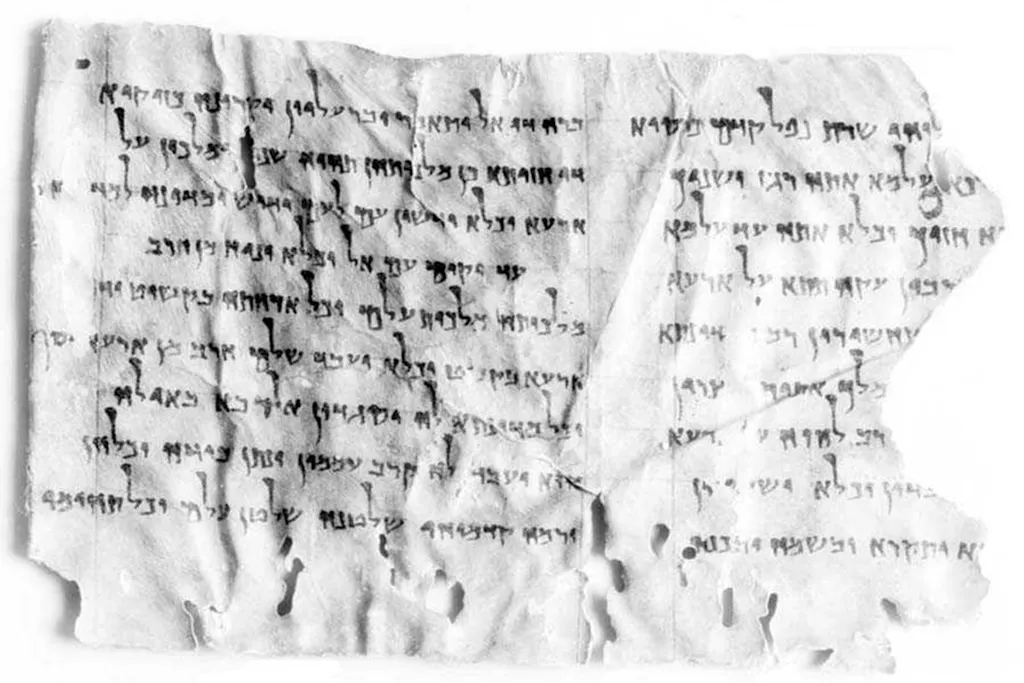 לוהי שרת נפל קדם כרסיא
עלמא אתה רגז ושניך
א חזוך וכלא אתה עד עלמא
רברבין עקה תתא על ארעא
במדינתא
מלך אתור
רב להוה
עבדון וכלא
א יתקרא ובשמה יתכנה
ברה די אל יתאמר ובר עליון יקרונה כזיקיא
די חזותא כן מלכותהן תהוה שני ימלכון על
ארעא וכלא ידשון עם לעם ידוש ומדינה
עד יקום עם אל וכלא יניח מן חרב
מלכותה מלכות עלם וכל ארחתה בקשוט
ארעא בקשט וכלא יעבד שלם חרב מן ארעא יסף
וכל מדינתה לה יסגדון אל רבא באילה
הוא ועבד לה קרב עממין ינתן בידה וכלהן
ירמה קדמוהי שלטנה שלטן עלם וכל תהומי